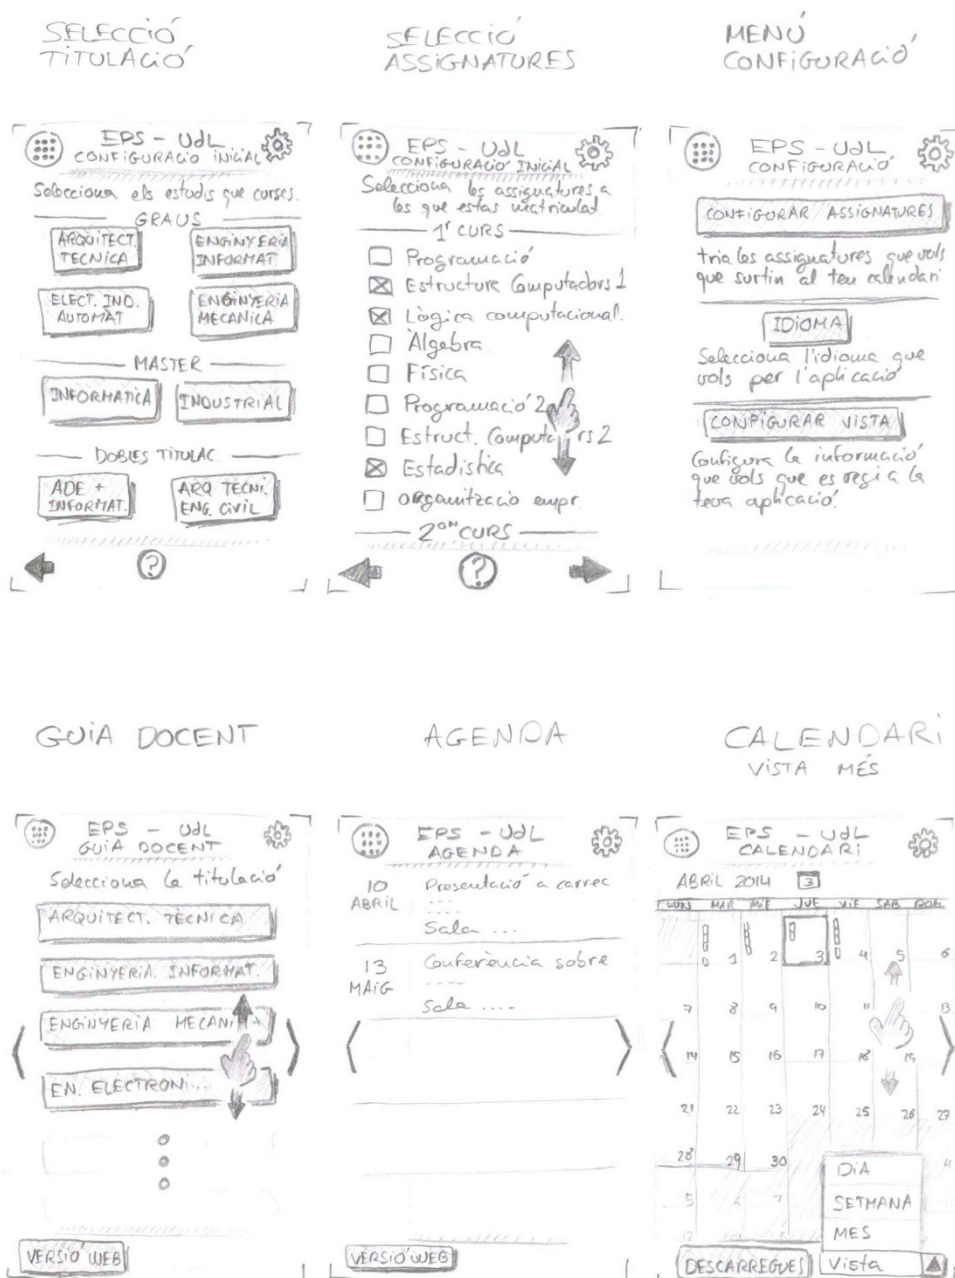 SELECCIÓ
TITULACIÓ
EPS - UdL
CONFIGURACIÓ INICIAL
Selecciona els estudis que curses.
GRAUS
ARQUITECT.
TECNICA
ENGINYERIA
INFORMAT.
ELECT. IND.
AUTOMAT
ENGINYERIA
MECANICA
MASTER
INFORMATICA
INDUSTRIAL
DOBLES TITULAC.
ADE +
INFORMAT.
ARQ TECNI.
ENG. CIVIL
?
SELECCIÓ
ASSIGNATURES
EPS - UdL
CONFIGURACIÓ INICIAL
Selecciona les assignatures a
les que estas matriculat
1r CURS
Programació
Estructura Computadors 1
Lògica computacional.
Àlgebra
Física
Programació 2
Estruct. Computa rs 2
Estadistica
organització empr.
2on CURS
?
MENÚ
CONFIGURACIÓ
EPS - UdL
CONFIGURACIÓ
CONFIGURAR ASSIGNATURES
tria les assignatures que vols
que surtin al teu calendari
IDIOMA
Selecciona l'idioma que
vols per l'aplicació
CONFIGURAR VISTA
Configura la informació
que vols que es regi a la
teva aplicació.
GUIA DOCENT
EPS - UdL
GUIA DOCENT
Selecciona la titulació
ARQUITECT. TÈCNICA
ENGINYERIA. INFORMAT.
ENGINYERIA MECANI
EN. ELECTRONI...
VERSIÓ WEB
AGENDA
EPS - UdL
AGENDA
10 ABRIL
Presentació a carrec
...
....
Sala ....
13 MAIG
Conferència sobre
....
Sala ....
VERSIÓ WEB
CALENDARI
VISTA MÉS
EPS - UdL
CALENDARI
ABRIL 2014 3
LUN MAR MIE JUE VIE SAB DOM
1 2 3 4 5 6
7 8 9 10 11 13
14 15 16 17 18 19
21 22 23 24 25 26 27
28 29 30
5
DIA
SETMANA
MES
DESCARREGUES Vista